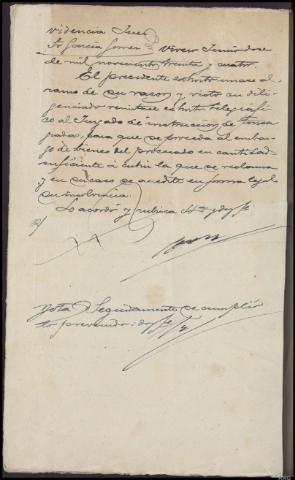 videncia Juez
Sr Garcia Gomez
de mil novecientos treinta y cuatro.
El precedente exhorto unase al
ramo de su razon y visto su dili-
genciado remitase exhorto telegrafi-
co al Juzgado de instrucción de
para que se proceda al embar-
go de bienes del procesado en cantidad
suficiente á cubrir la que se reclama
y en su caso se acredite en forma legal
su insolvencia.
Lo acordó y rubrica S.S. doy fe
Nota Seguidamente se cumplió
lo prevenido: doy fe